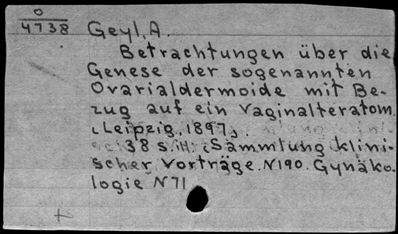 O
4738
Geyl, A.
Betrachtungen über die
Genese der sogenannten
Ovarialdermoide mit Be-
zug auf ein Vaginalteratom.
(Leipzig, 1897).
38 s. (Sammlung klini-
scher Vorträge. N190. Gynäko-
logie N71